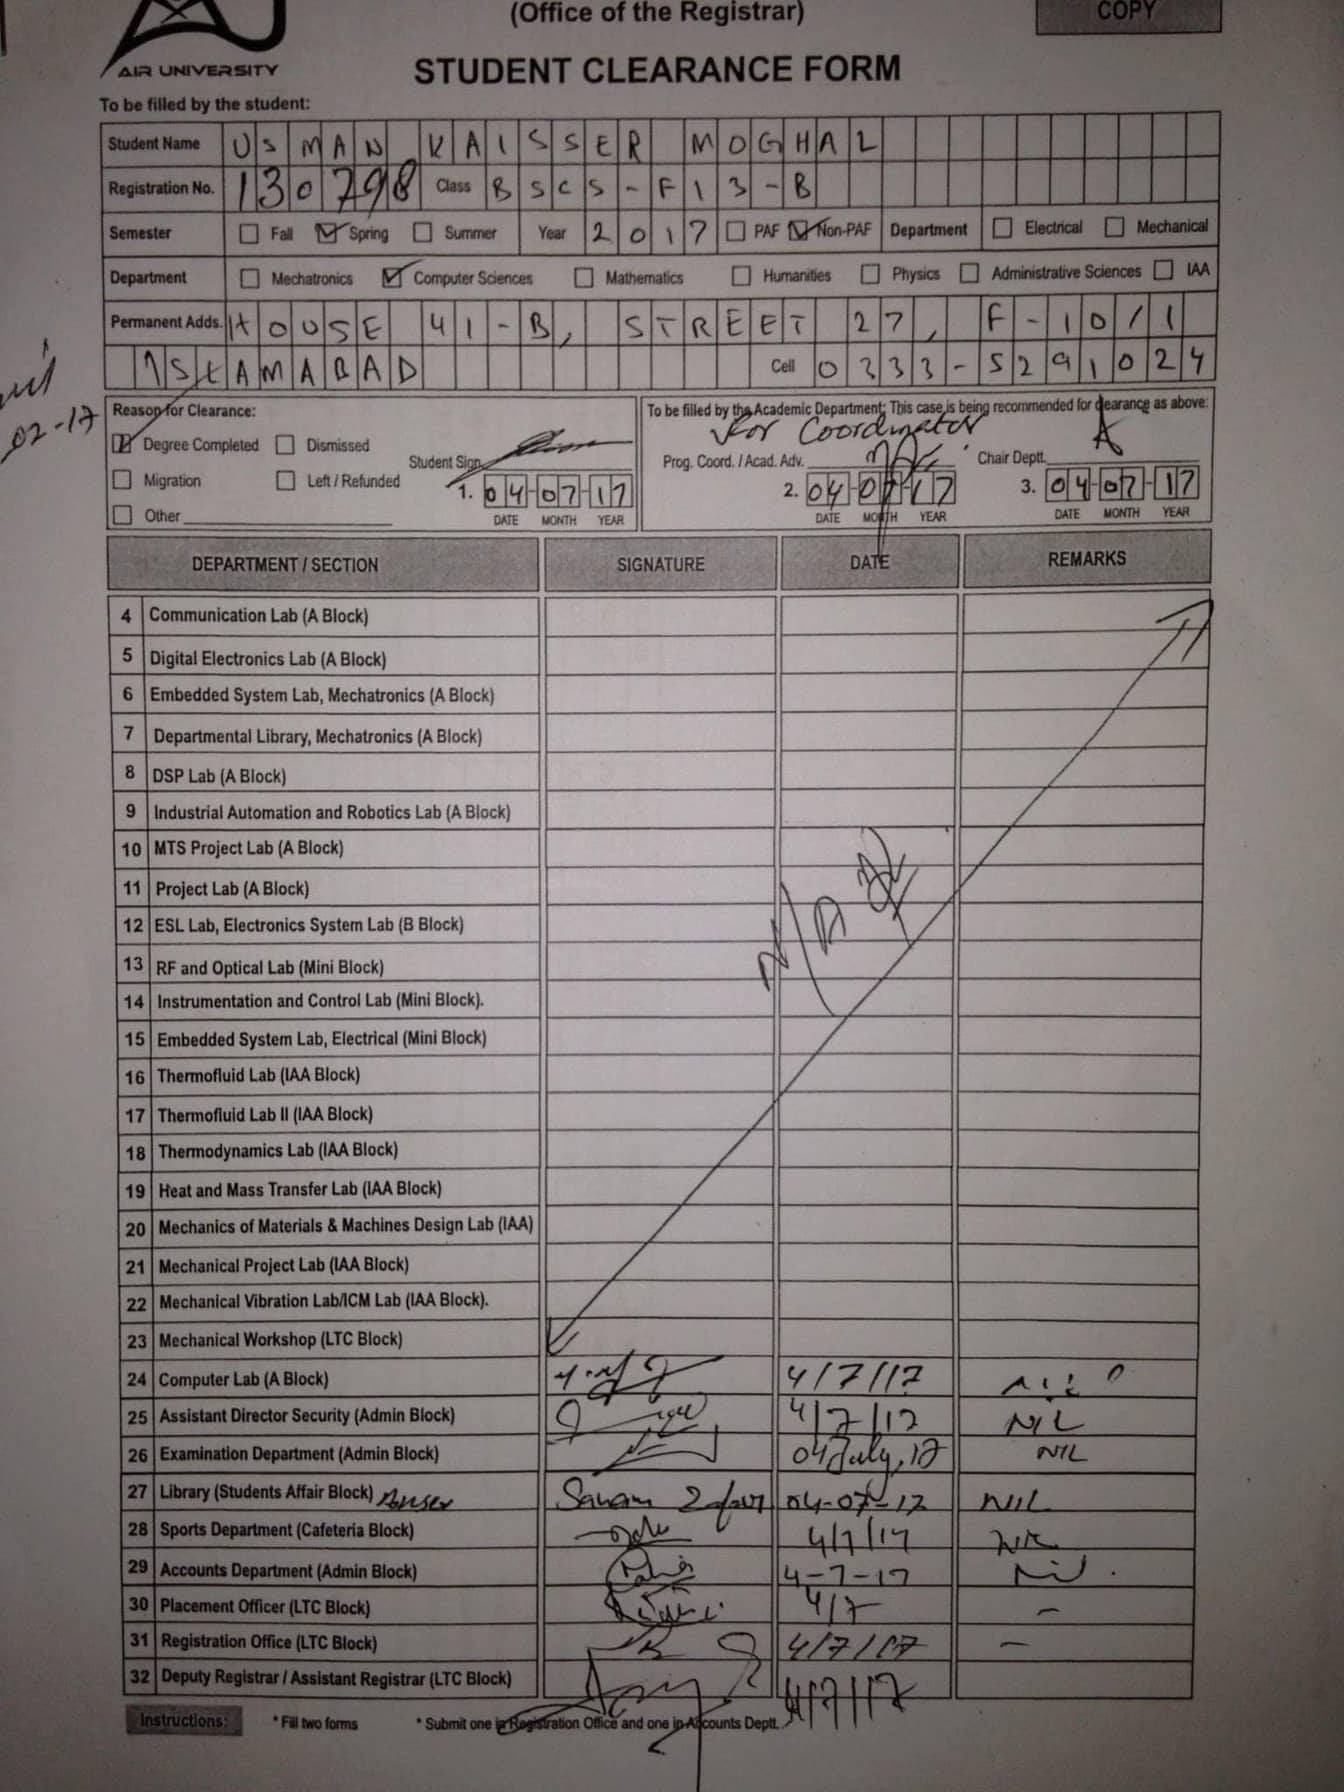 (Office of the Registrar)
COPY
AIR UNIVERSITY
STUDENT CLEARANCE FORM
To be filled by the student:
Student Name USMAN KAISSER MOGHAL
Registration No. 130798 Class BSCS-F13-B
Semester Fall Spring Summer Year 2017 PAF Non-PAF Department Electrical Mechanical
Department Mechatronics Computer Sciences Mathematics Humanities Physics Administrative Sciences IAA
Permanent Adds. HOUSE 41-B, STREET 27, F-10/1
ISLAMABAD Cell 0333-5291024
02-17
Reason for Clearance:
Degree Completed Dismissed
Migration Left / Refunded
Other
Student Sign.
1. 04-07-17
DATE MONTH YEAR
To be filled by the Academic Department: This case is being recommended for clearance as above:
For Coordinator
Prog. Coord. / Acad. Adv. Chair Deptt.
2. 04-07-17 3. 04-07-17
DATE MONTH YEAR DATE MONTH YEAR
DEPARTMENT / SECTION SIGNATURE DATE REMARKS
4 Communication Lab (A Block)
5 Digital Electronics Lab (A Block)
6 Embedded System Lab, Mechatronics (A Block)
7 Departmental Library, Mechatronics (A Block)
8 DSP Lab (A Block)
9 Industrial Automation and Robotics Lab (A Block)
10 MTS Project Lab (A Block)
11 Project Lab (A Block)
12 ESL Lab, Electronics System Lab (B Block)
N/A
13 RF and Optical Lab (Mini Block)
14 Instrumentation and Control Lab (Mini Block).
15 Embedded System Lab, Electrical (Mini Block)
16 Thermofluid Lab (IAA Block)
17 Thermofluid Lab II (IAA Block)
18 Thermodynamics Lab (IAA Block)
19 Heat and Mass Transfer Lab (IAA Block)
20 Mechanics of Materials & Machines Design Lab (IAA)
21 Mechanical Project Lab (IAA Block)
22 Mechanical Vibration Lab/ICM Lab (IAA Block).
23 Mechanical Workshop (LTC Block)
24 Computer Lab (A Block) 4/7/17
25 Assistant Director Security (Admin Block) 4/7/17 NIL
26 Examination Department (Admin Block) 04 July, 17 NIL
27 Library (Students Affair Block) 04-07-17 NIL
28 Sports Department (Cafeteria Block) 4/7/17
29 Accounts Department (Admin Block) 4-7-17 Nil.
30 Placement Officer (LTC Block) 4/7 -
31 Registration Office (LTC Block) 4/7/17 -
32 Deputy Registrar / Assistant Registrar (LTC Block) 4/7/17
Instructions: * Fill two forms * Submit one in Registration Office and one in Accounts Deptt.